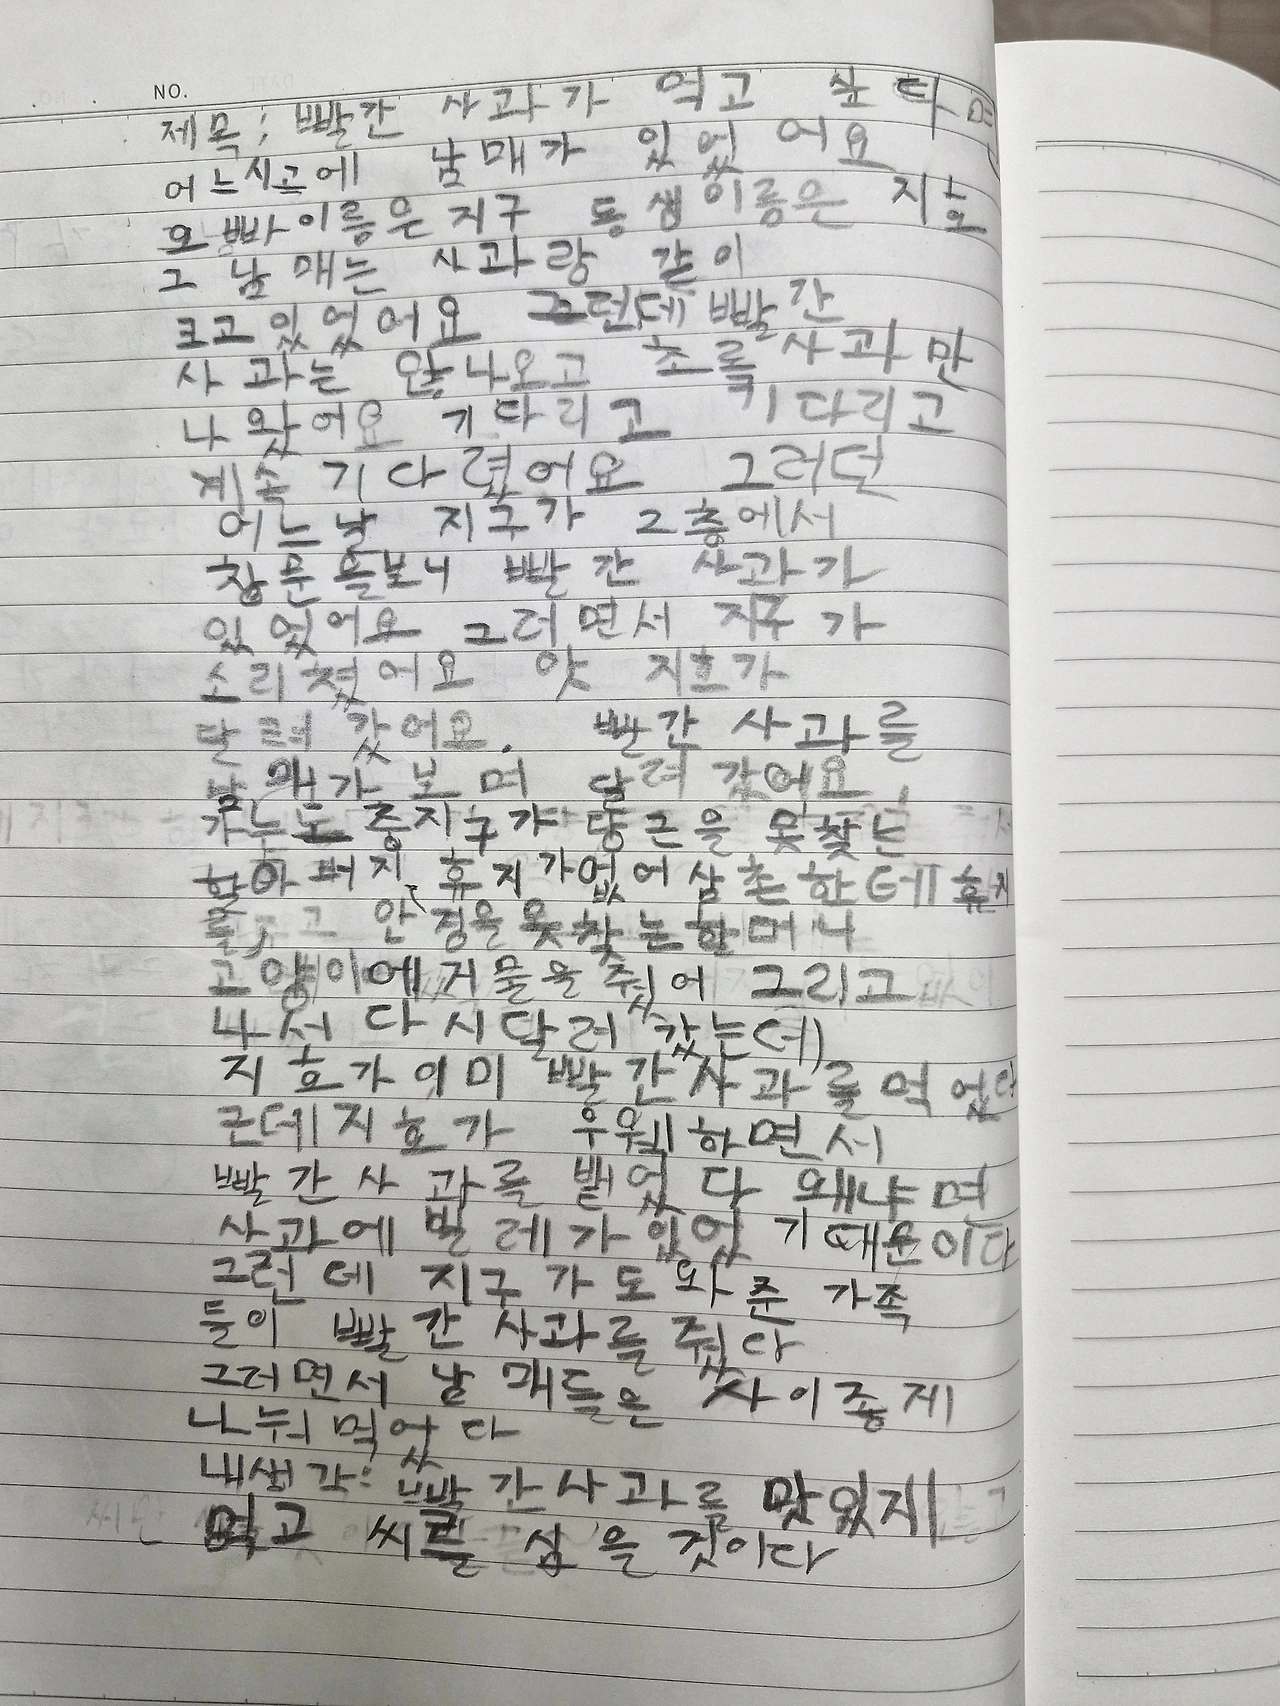 NO.
제목; 빨간 사과가 먹고 싶다면
어느시골에 남매가 있었어요
오빠이름은지구 동생이름은 지호
그 남매는 사과랑 같이
크고있었어요 그런데 빨간
사과는 않나오고 초록사과만
나왔어요 기다리고 기다리고
계속 기다렸어요 그러던
어느날 지구가 2층에서
창문을보니 빨간 사과가
있었어요 그러면서 지구가
소리쳤어요 앗 지호가
달려갔어요. 빨간 사과를
남매가 보며 달려갔어요
가는도중지구가 당근을못찾는
할아버지, 휴지가없어삼촌한데휴지
를주고 안경을못찾는할머니
고양이에게 물을줬어 그리고
나서 다시달려갔는데
지호가이미 빨간사과를먹었다
근데지호가 우웩하면서
빨간사과를뱉었다 왜냐면
사과에벌레가있었기때문이다
그런데 지구가도와준 가족
들이 빨간사과를줬다
그러면서 남매들은 사이좋게
나눠먹었다
내생각: 빨간사과를 맛있게
먹고 씨를 심을 것이다